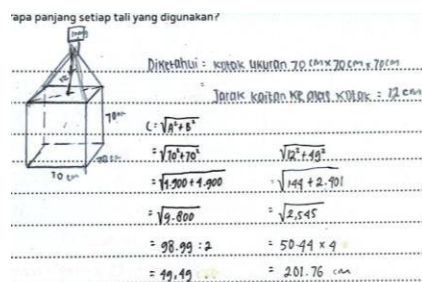 apa panjang setiap tali yang digunakan?
Diketahui : kotak ukuran 70 cm x 70 cm x 70 cm
Jarak kaitan ke alas kotak : 12 cm
70 cm
70 cm
C = √A² + B²
= √70² + 70²
= √4.900 + 4.900
= √9.800
= 98.99 : 2
= 49,49
√12² + 49²
= √144 + 2.401
= √2,545
= 50.44 x 4
= 201.76 cm